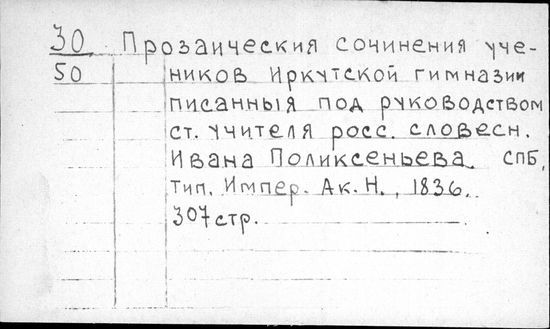 30 Прозаическия сочинения уче-
50 ников Иркутской гимназии
писанныя под руководством
ст. учителя росс. словесн.
Ивана Поликсеньева. СПБ,
тип. Импер. Ак. Н., 1836.
307 стр.